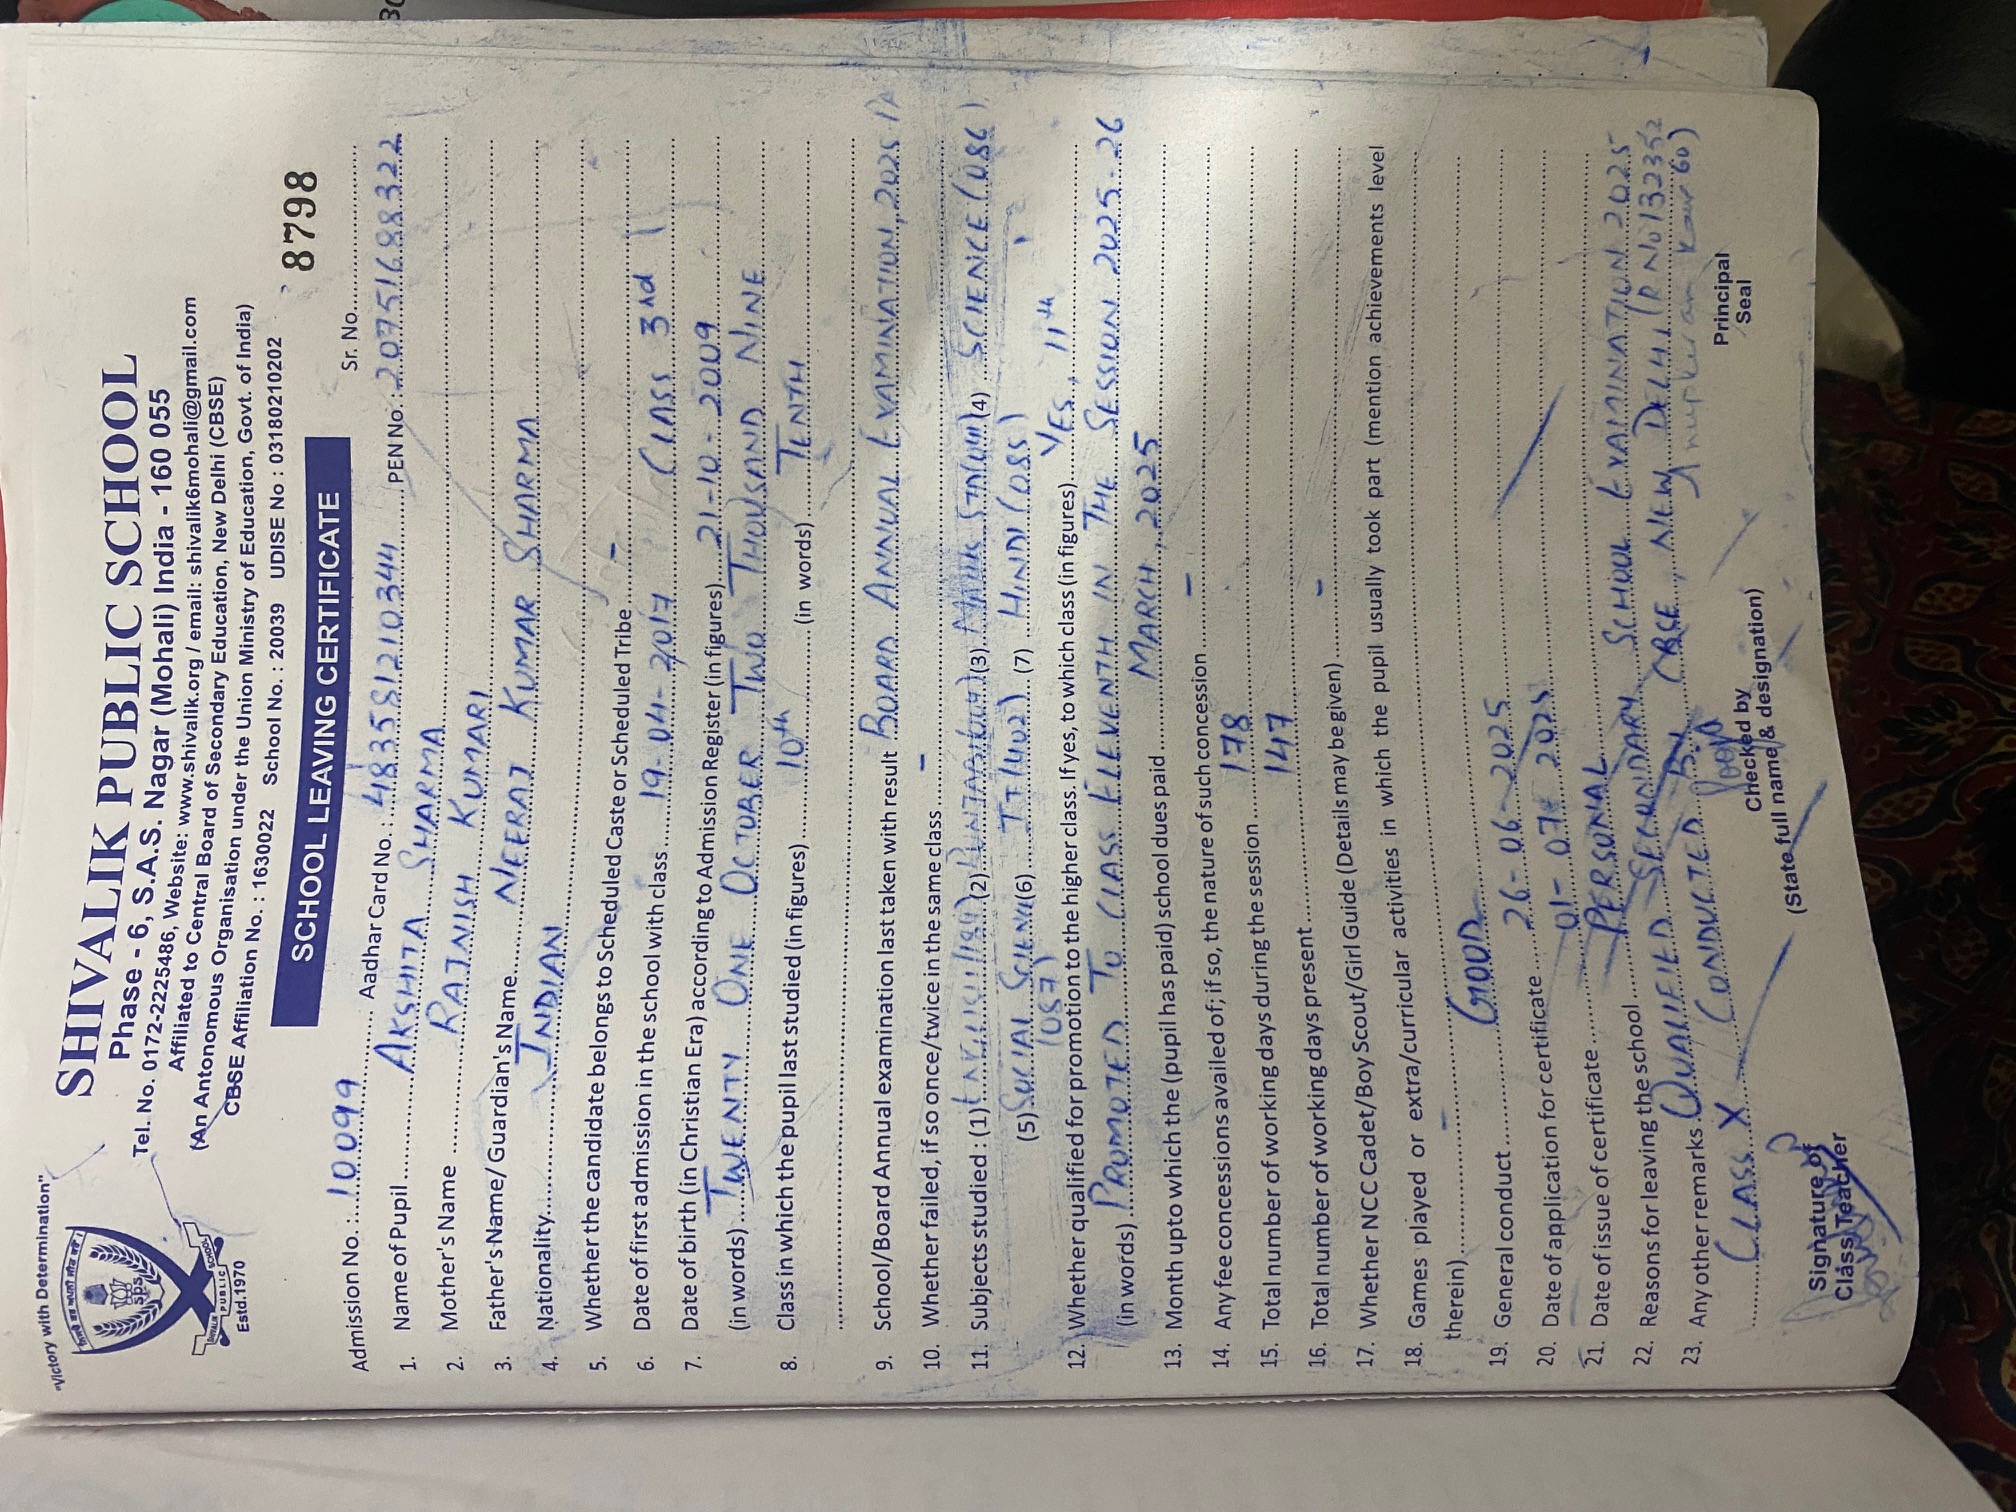 "Victory with Determination"
SHIVALIK PUBLIC SCHOOL
Phase - 6, S.A.S. Nagar (Mohali) India - 160 055
Tel. No. 0172-2225486, Website: www.shivalik.org / email: shivalik6mohali@gmail.com
Affiliated to Central Board of Secondary Education, New Delhi (CBSE)
(An Antonomous Organisation under the Union Ministry of Education, Govt. of India)
CBSE Affiliation No. : 1630022 School No. : 20039 UDISE No : 03180210202
SPS
SHIVALIK PUBLIC SCHOOL
Estd.1970
SCHOOL LEAVING CERTIFICATE
8798
Sr. No.
Admission No. : 10099 Aadhar Card No. : 483581210344 PEN No : 20751688322
1. Name of Pupil AKSHITA SHARMA
2. Mother's Name RAJNISH KUMARI
3. Father's Name/ Guardian's Name NEERAJ KUMAR SHARMA
4. Nationality INDIAN
5. Whether the candidate belongs to Scheduled Caste or Scheduled Tribe -
6. Date of first admission in the school with class 19-04-2017 CLASS 3rd
7. Date of birth (in Christian Era) according to Admission Register (in figures) 21-10-2009
(in words) TWENTY ONE OCTOBER TWO THOUSAND NINE
8. Class in which the pupil last studied (in figures) 10th (in words) TENTH
9. School/Board Annual examination last taken with result BOARD ANNUAL EXAMINATION, 2025
10. Whether failed, if so once/twice in the same class -
11. Subjects studied : (1) ENGLISH (184) (2) PUNJABI (3) (4) SCIENCE (086)
(5) SOCIAL SCIENCE (087) (6) IT (402) (7) HINDI (085)
12. Whether qualified for promotion to the higher class. If yes, to which class (in figures) YES, 11th
(in words) PROMOTED TO CLASS ELEVENTH IN THE SESSION 2025-26
13. Month upto which the (pupil has paid) school dues paid MARCH, 2025
14. Any fee concessions availed of; if so, the nature of such concession -
15. Total number of working days during the session 178
16. Total number of working days present 147
17. Whether NCC Cadet/Boy Scout/Girl Guide (Details may be given) -
18. Games played or extra/curricular activities in which the pupil usually took part (mention achievements level
therein) -
19. General conduct GOOD
20. Date of application for certificate 26-06-2025
21. Date of issue of certificate 01-07-2025
22. Reasons for leaving the school PERSONAL
23. Any other remarks QUALIFIED SECONDARY SCHOOL EXAMINATION 2025
CLASS X CONDUCTED BY CBSE, NEW DELHI
Signature of
Class Teacher
Checked by
(State full name & designation)
Principal
Seal